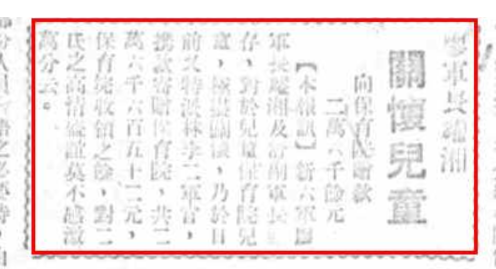 廖軍長耀湘
關懷兒童
向保育院贈款
二萬六千餘元
【本報訊】新六軍廖
軍長耀湘及舒副軍長
存,對於兒童保育院兒
童,極盡關懷,乃於日
前又特派林李二軍官,
携款 贈保育院,共二
萬六千六百五十二元,
保育院收領之餘,對二
氏之高情盛誼莫不感激
萬分云。